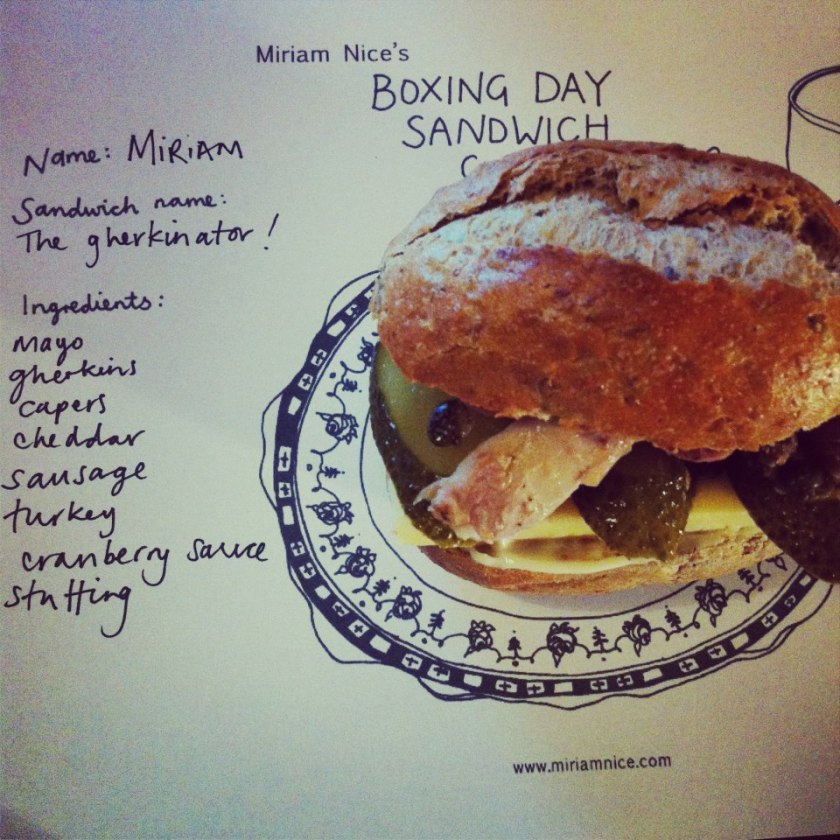 Miriam Nice's
BOXING DAY
SANDWICH
Name: MIRIAM
Sandwich name:
The gherkinator!
Ingredients:
Mayo
gherkins
capers
cheddar
sausage
turkey
cranberry sauce
stuffing
www.miriamnice.com